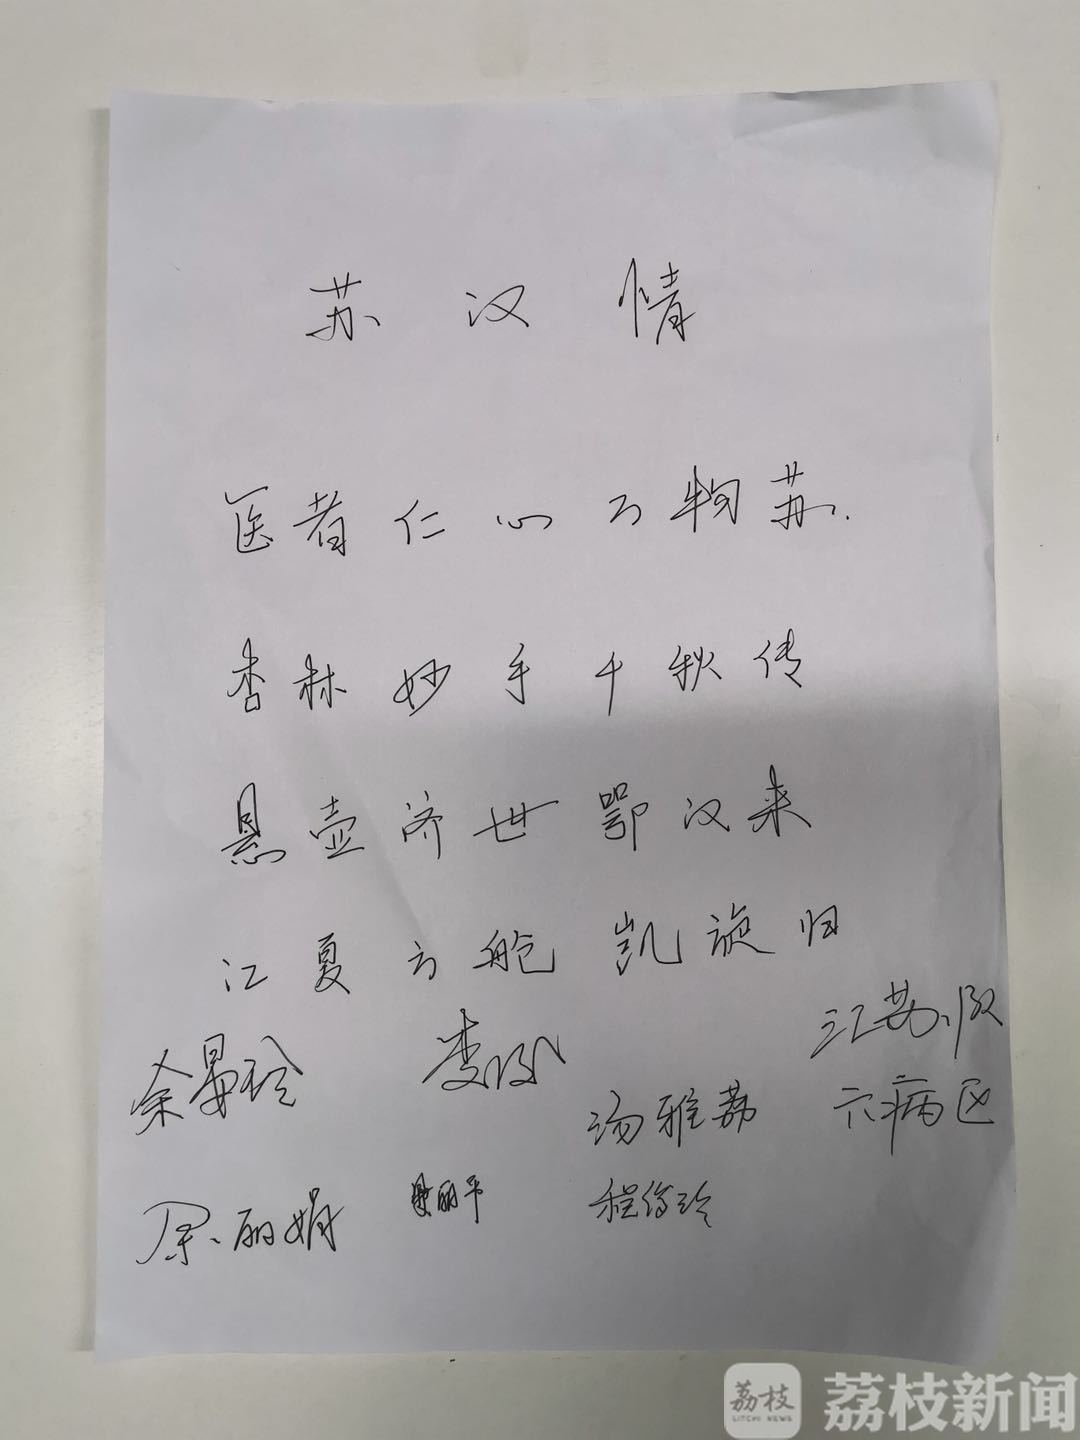 苏汉情
医者仁心万物苏.
杏林妙手千秋传
悬壶济世鄂汉来
江夏方舱凯旋归
江苏队
六病区
汤雅荔
丽娟
丽平
程俊玲
荔枝
LITCHI NEWS
荔枝新闻